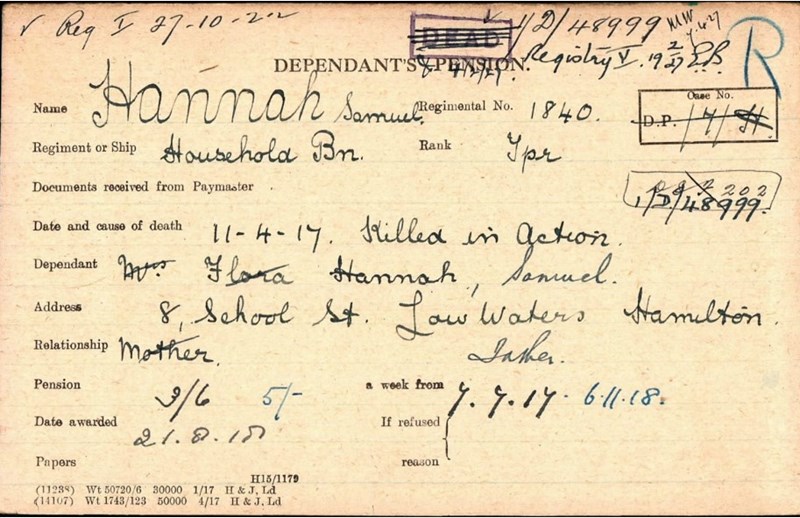 ✓ Reg V 27-10-22 DEAD ✓ 1/D/48999
DEPENDANT'S PENSION. Registry V. R
Name Hannah Samuel. Regimental No. 1840. Case No.
D.P. /7/H
Regiment or Ship Household Bn. Rank Tpr
Documents received from Paymaster
1/D/48999.
Date and cause of death 11-4-17. Killed in Action.
Dependant Mrs Flora Hannah, Samuel.
Address 8, School St. Low Waters Hamilton.
Relationship Mother. Father.
Pension 5/- a week from 7.7.17. 6.11.18.
Date awarded 21.8.18 If refused
Papers reason
H15/1179
(11238) Wt 50720/6 30000 1/17 H & J, Ld
(14107) Wt 1743/123 50000 4/17 H & J, Ld